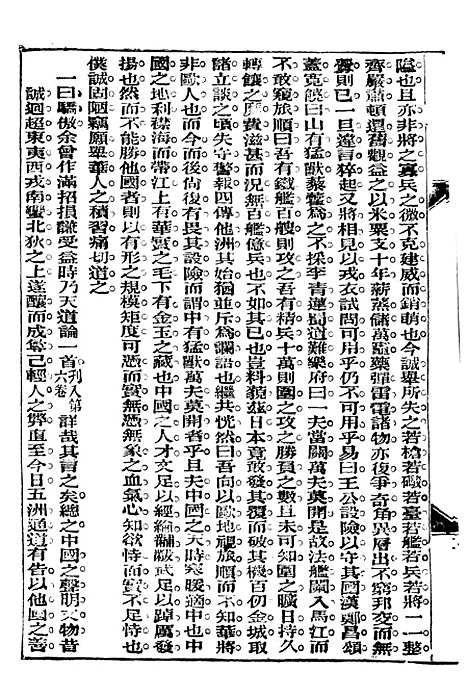 隘也且亦非將之寡兵之微不克建威而銷萌也今誠舉所失之若槍若礮若臺若艦若兵若將一一整
齊嚴肅頓還舊觀益之以米粟支十年薪蒸儲萬竈藥彈雷電諸物亦復爭奇角異層出不窮邦交而無
釁則已一旦違言猝起又將相見以戎衣試問可用乎仍不可用乎易曰王公設險以守其國漢鄭昌頌
蓋寬饒曰山有猛獸藜藿為之不採李青蓮蜀道難樂府曰一夫當關萬夫莫開是故法艦闖入馬江而
不敢窺旅順曰吾有鐵艦百艘則攻之吾有精兵十萬則圍之攻之勝負之數且未可知圍之曠日持久
轉饟之糜費滋甚而況無百艦億兵也不如其已也豈料藐茲日本竟敢發其覆而破其機百仞金城取
諸立談之頃失守警報四傳他洲其始猶並斥為讕語也繼其恍然曰吾向以歐地視旅順而不知華將
非歐人也而今而後尚復有畏其設險而謂中有猛獸萬夫莫開者乎且夫中國之天時寒暖適中也中
國之地利襟海而帶江上有華實之毛下有金玉之藏也中國之人才文足以經綸黼黻武足以踔厲發
揚也然而不能勝他國者則以有形之規模矩度可憑而實無憑無象之血氣心知欲恃而實不足恃也
僕誠固陋竊願舉華人之積習痛切道之
一曰驕傲余曾作滿招損謙受益時乃天道論一首列入第六卷詳哉其言之矣總之中國之聲明文物昔
誠迥超東夷西戎南蠻北狄之上遂釀而成奪己輕人之弊直至今日五洲通道有告以他國之善